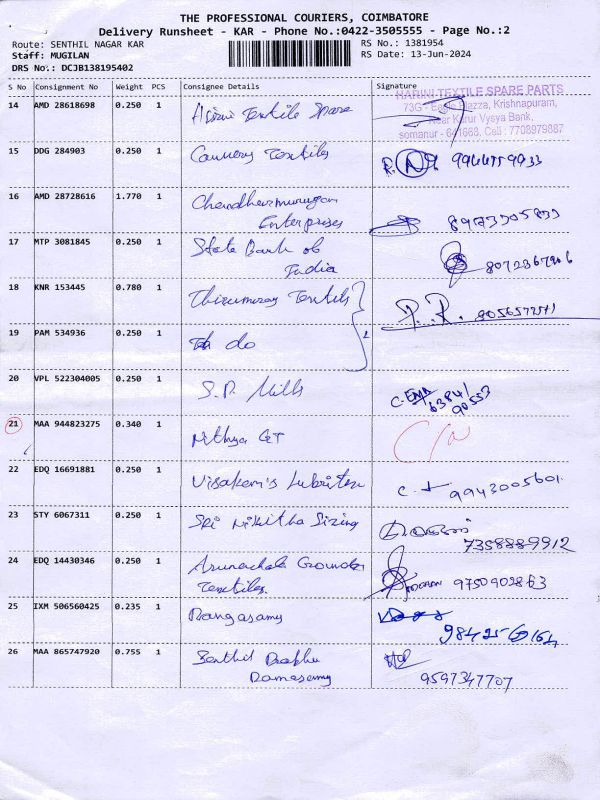 THE PROFESSIONAL COURIERS, COIMBATORE
Delivery Runsheet - KAR - Phone No.:0422-3505555 - Page No.:2
Route: SENTHIL NAGAR KAR
RS No.: 1381954
Staff: MUGILAN
RS Date: 13-Jun-2024
DRS No.: DCJB138195402
S No Consignment No Weight PCS Consignee Details Signature
HARINI TEXTILE SPARE PARTS
73G - Plazza, Krishnapuram,
Near Karur Vysya Bank,
somanur - 641668. Cell : 7708979887
14 AMD 28618698 0.250 1 Textile Spare
15 DDG 284903 0.250 1 Textiles
16 AMD 28728616 1.770 1 Chendhurmurugan
Enterprises
17 MTP 3081845 0.250 1 State Bank of
India 8072367906
18 KNR 153445 0.780 1 Thirumurug Textils P.R. 9056572571
19 PAM 534936 0.250 1 do
20 VPL 522304005 0.250 1 S.P. Mills
6384/
90553
21 MAA 944823275 0.340 1 Nithya GT
22 EDQ 16691881 0.250 1 9943005601
23 STY 6067311 0.250 1 Sri Nikitha Sizing
7358889912
24 EDQ 14430346 0.250 1 Arunachala Gounder
Textiles. 9750902863
25 IXM 506560425 0.235 1 Rangasamy
26 MAA 865747920 0.755 1 Senthil Prabhu
Ramasamy 9597347707